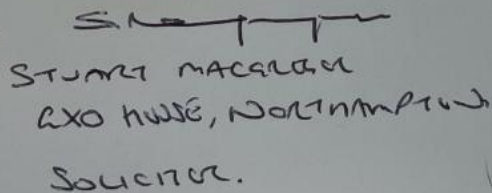 STUART MACGREGOR
EXO HOUSE, NORTHAMPTON
SOLICITOR.